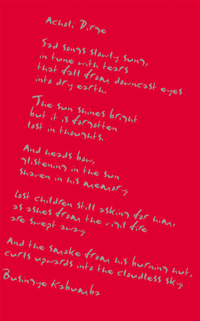 Acholi Dirge
Sad songs slowly sung,
in tune with tears
that fall from downcast eyes
into dry earth.
The sun shines bright
but it is forgotten
lost in thoughts.
And heads bow,
glistening in the sun
shaven in his memory
Lost children still asking for him,
as ashes from the vigil fire
are swept away
And the smoke from his burning hut,
curls upwards into the cloudless sky.
Businge Kabumba